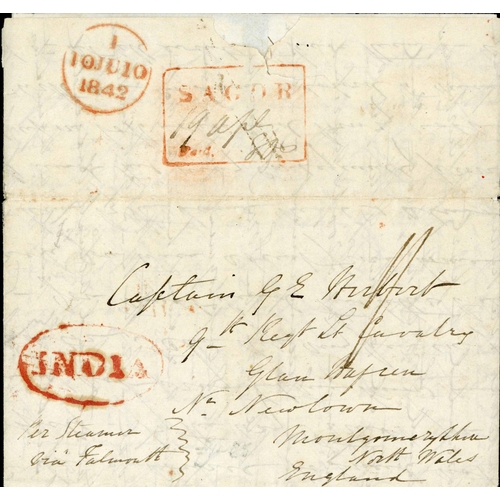 1
10JU10
1842
SAGOR
19 Apl
Paid.
Captain G E Herbert
9th Regt Lt Cavalry
Glan Hafren
Nr Newtown
Montgomeryshire
North Wales
England
INDIA
Per Steamer
via Falmouth